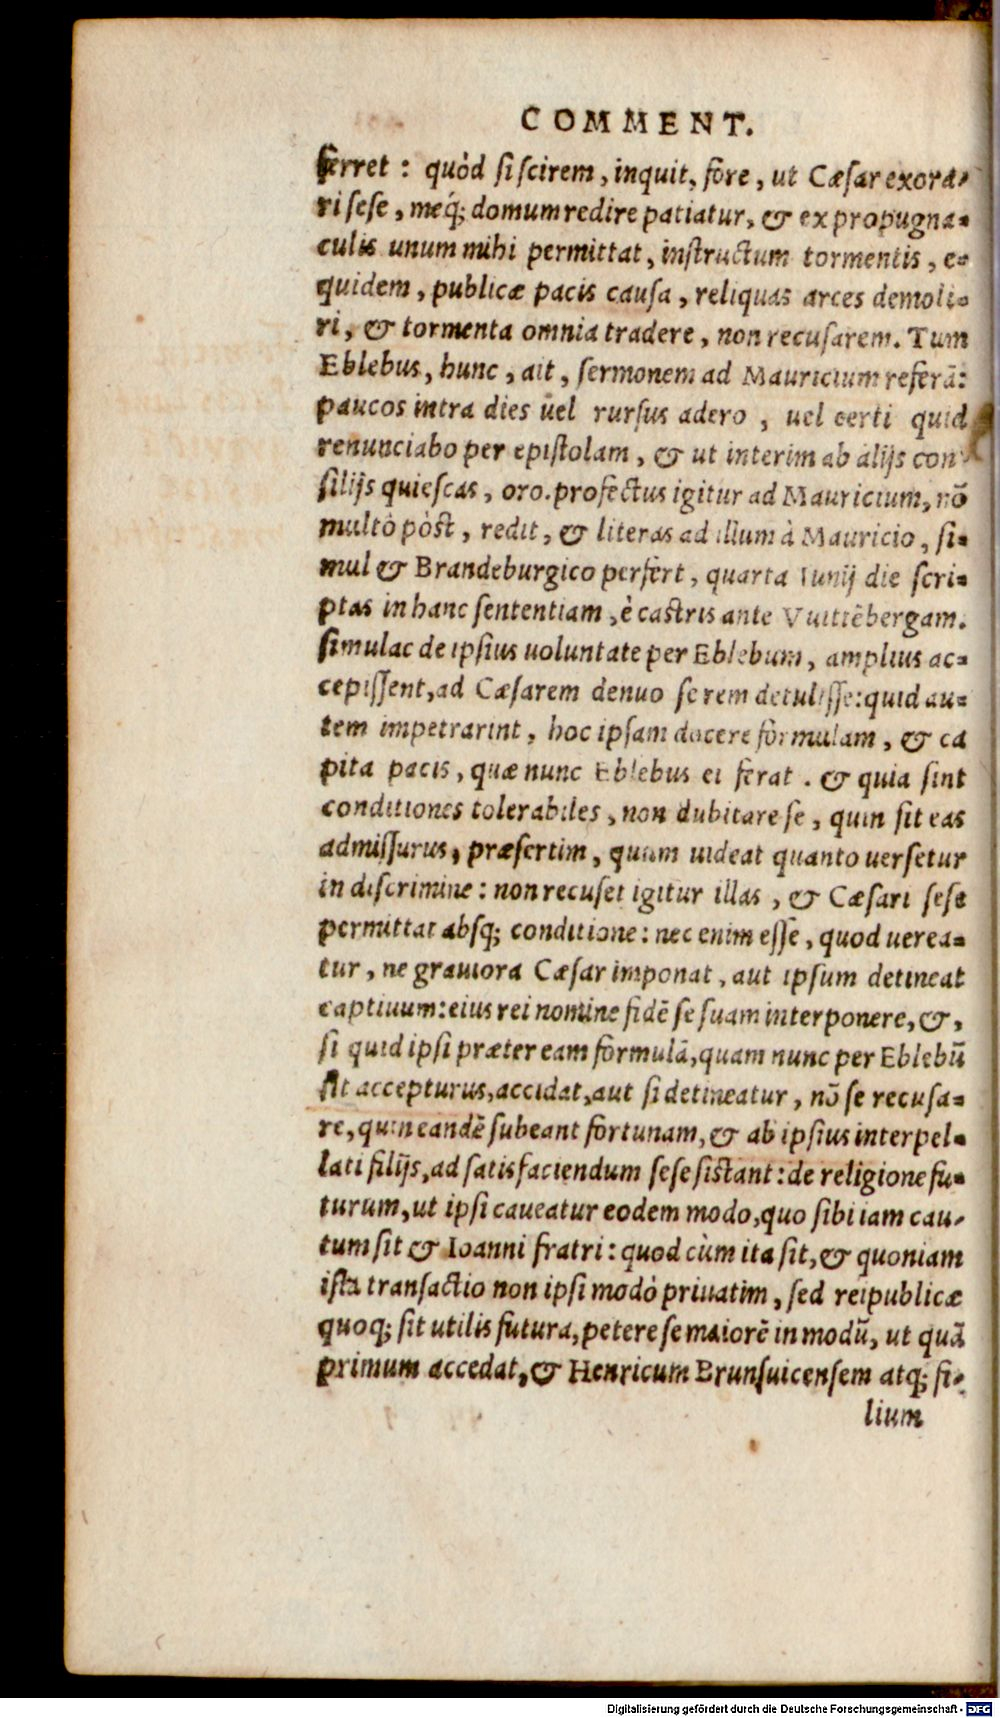 COMMENT.
ferret : quòd si scirem, inquit, fore, ut Cæsar exora-
ri sese, meq́; domum redire patiatur, & ex propugna-
culis unum mihi permittat, instructum tormentis, e-
quidem, publicæ pacis causa, reliquas arces demoli-
ri, & tormenta omnia tradere, non recusarem. Tum
Eblebus, hunc, ait, sermonem ad Mauricium referā:
paucos intra dies uel rursus adero, uel certi quid
renunciabo per epistolam, & ut interim ab alijs con
silijs quiescas, oro. profectus igitur ad Mauricium, nō
multò pòst, redit, & literas ad illum à Mauricio, si-
mul & Brandeburgico perfert, quarta Iunij die scri-
ptas in hanc sententiam, è castris ante Vuittēbergam.
simulac de ipsius uoluntate per Eblebum, amplius ac-
cepissent, ad Cæsarem denuo se rem detulisse: quid au-
tem impetrarint, hoc ipsam docere formulam, & ca
pita pacis, quæ nunc Eblebus ei ferat. & quia sint
conditiones tolerabiles, non dubitare se, quin sit eas
admissurus, præsertim, quum uideat quanto uersetur
in discrimine: non recuset igitur illas, & Cæsari sese
permittat absq; conditione: nec enim esse, quod uerea-
tur, ne grauiora Cæsar imponat, aut ipsum detineat
captiuum: eius rei nomine fidē se suam interponere, &,
si quid ipsi præter eam formulā, quam nunc per Eblebū
sit accepturus, accidat, aut si detineatur, nō se recusa-
re, quin eandē subeant fortunam, & ab ipsius interpel-
lati filijs, ad satisfaciendum sese sistant: de religione fu-
turum, ut ipsi caueatur eodem modo, quo sibi iam cau-
tum sit & Ioanni fratri: quod cùm ita sit, & quoniam
ista transactio non ipsi modò priuatim, sed reipublicæ
quoq; sit utilis futura, petere se maiorē in modū, ut quā
primum accedat, & Henricum Brunsuicensem atq; fi-
lium
Digitalisierung gefördert durch die Deutsche Forschungsgemeinschaft - DFG